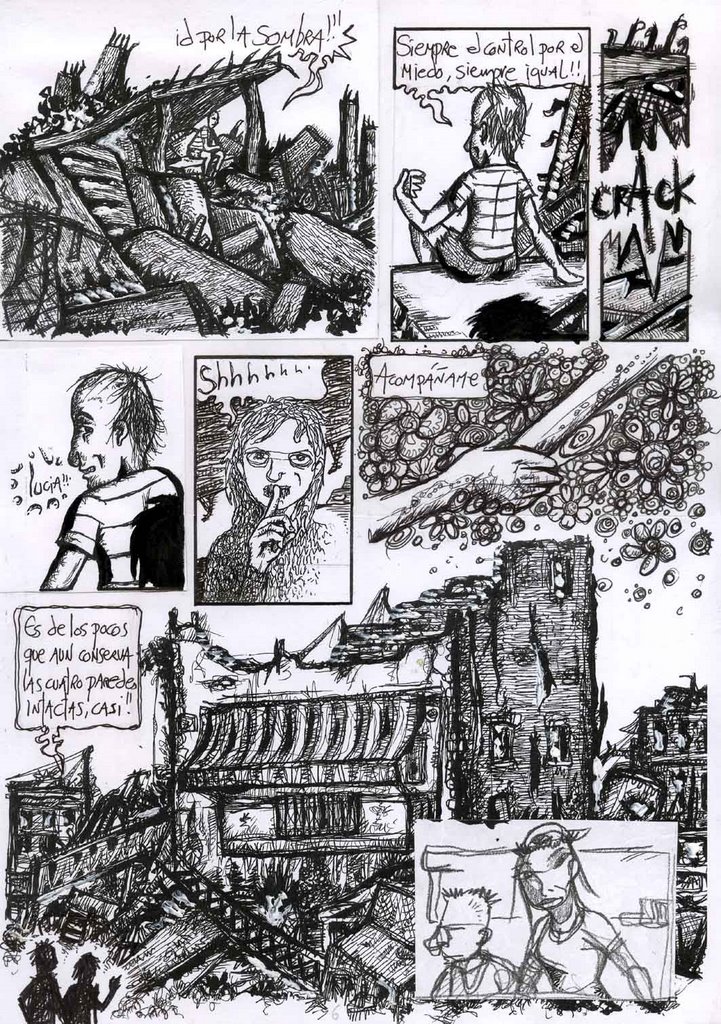 id por la sombra!!!
Siempre el control por el
Miedo, siempre igual!!
CRACK
Lucia!!
Shhhhhh..
Acompáñame
Es de los pocos
que aun conserva
las cuatro paredes
intactas, casi!!